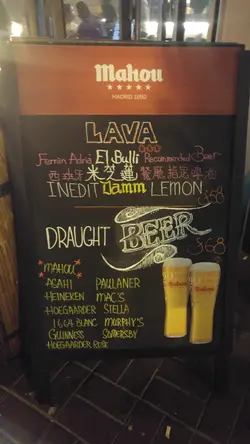 Mahou
★★★★★
MADRID 1890
LAVA
Ferrán Adriá El Bulli Recommended Beer
西班牙 米芝蓮 餐廳指定啤酒
INEDIT Damm LEMON $68
DRAUGHT BEER $68
*MAHOU*
ASAHI PAULANER
HEINEKEN MAC'S
HOEGAARDEN STELLA
1664 BLANC MURPHY'S
GUINNESS SOMERSBY
HOEGAARDEN ROSE